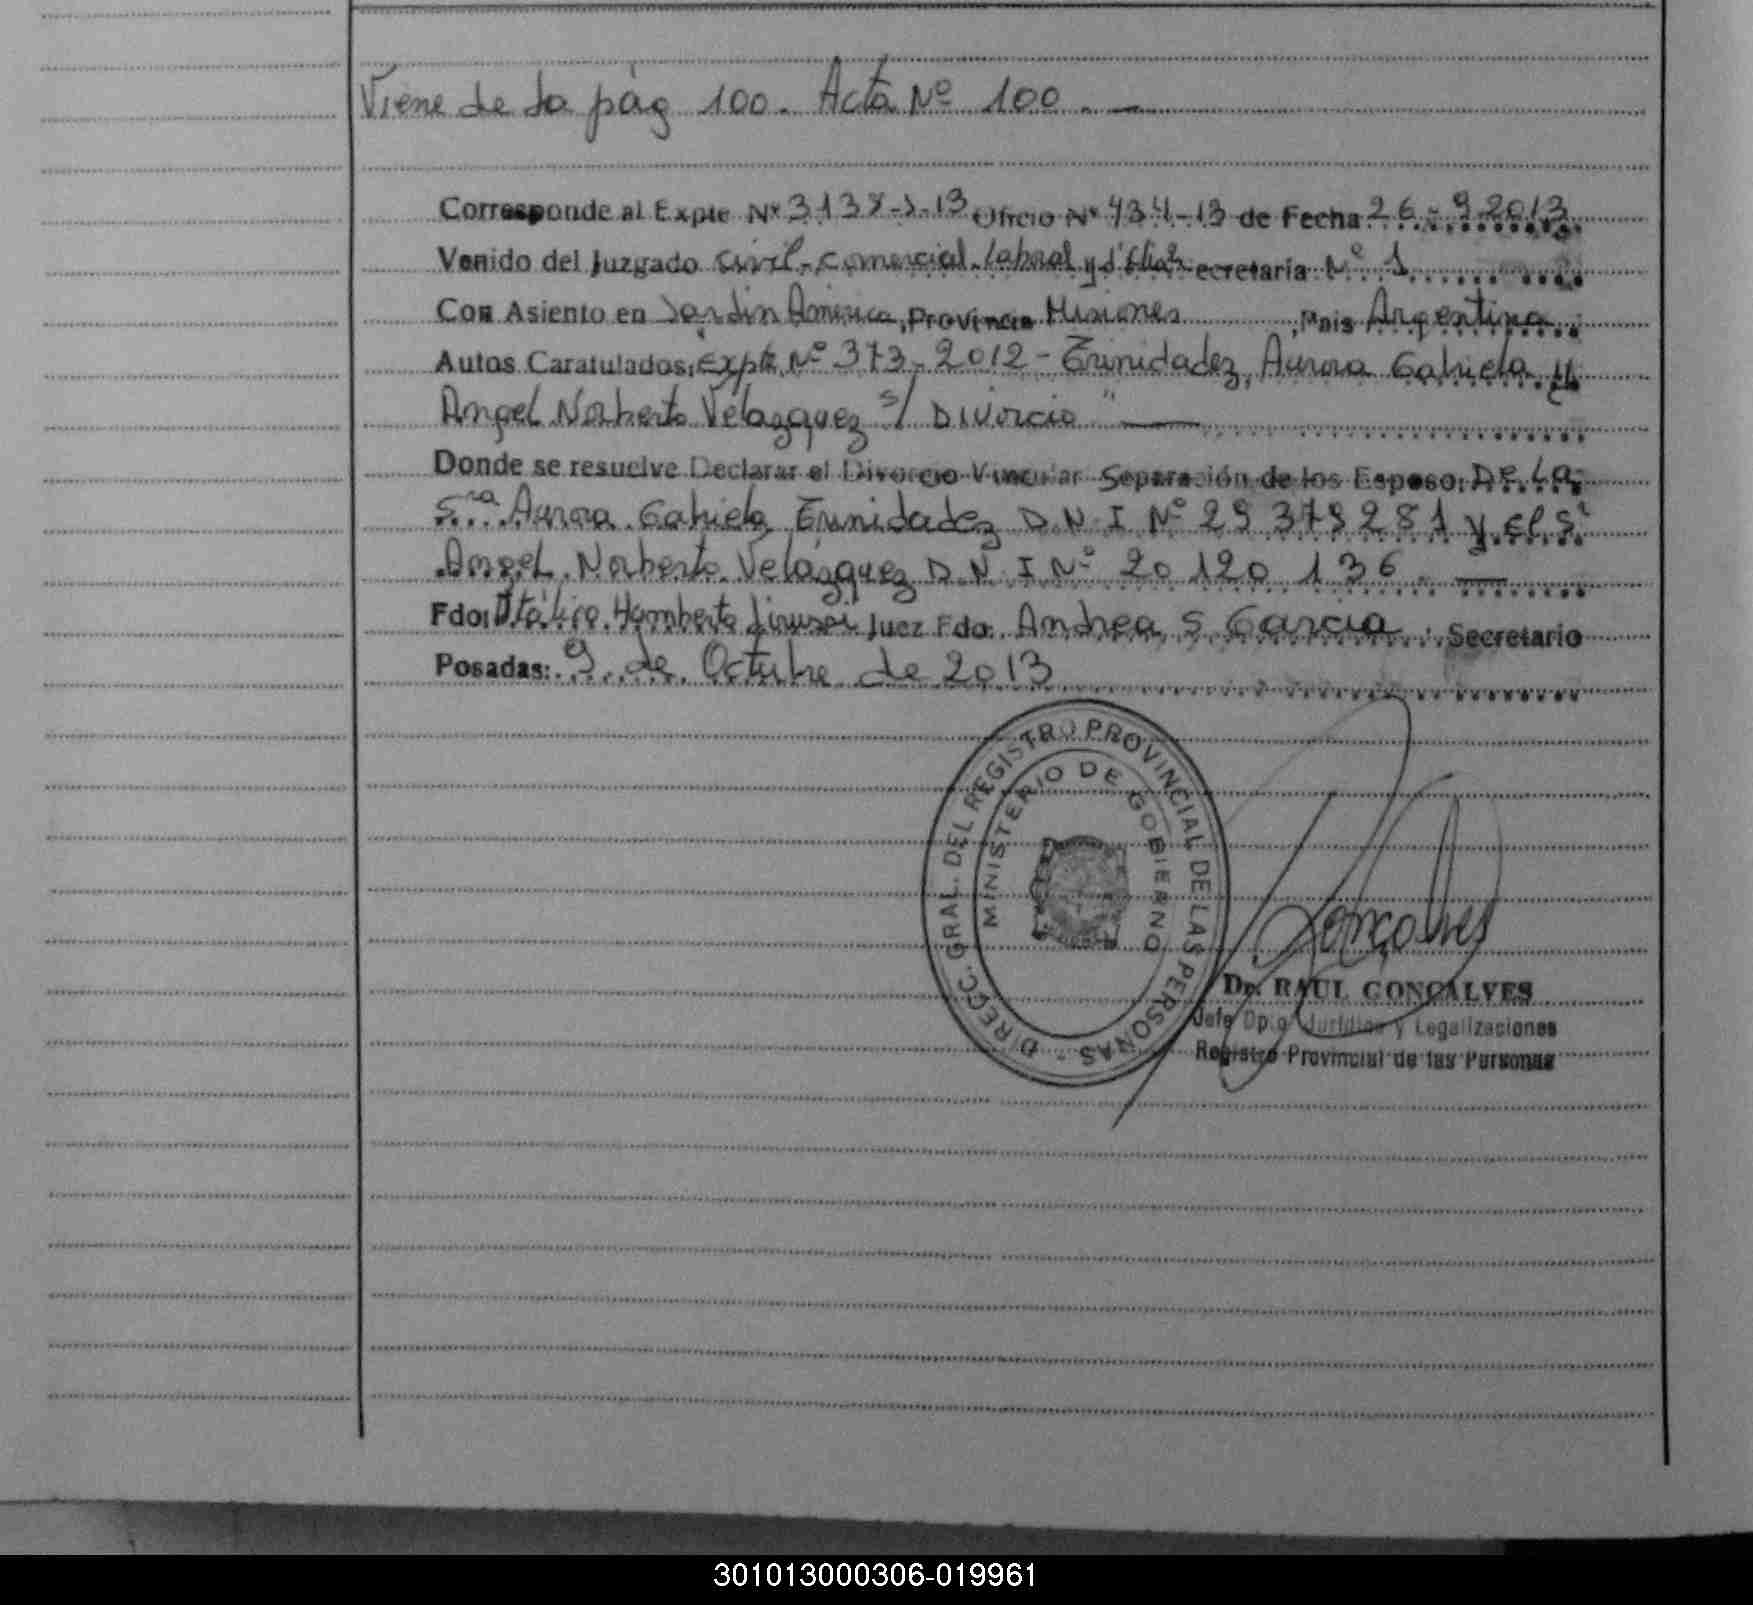 Viene de la pág 100. Acta Nº 100. —
Corresponde al Expte Nº 3138-J-13 Oficio Nº 434-13 de Fecha 26-9-2013
Venido del Juzgado Civil-Comercial-Laboral y d Flia Secretaria Nº 1
Con Asiento en Jardin América, Provincia Misiones, Pais Argentina
Autos Caratulados: Expte Nº 373-2012 - Trinidadez, Aurora Gabriela y
Angel Norberto Velazquez s/ Divorcio" —
Donde se resuelve Declarar el Divorcio Vincular Separación de los Esposo: De La
Sra Aurora Gabriela Trinidadez D N I Nº 29 379 281 y el Sr
Angel Norberto Velázquez D N I Nº 20 120 136. —
Fdo: Humberto Juez Fdo. Andrea S. Garcia Secretario
Posadas: 9 de Octubre de 2013
DIRECC. GRAL. DEL REGISTRO PROVINCIAL DE LAS PERSONAS -
MINISTERIO DE GOBIERNO
Goncalves
Dr. RAUL GONCALVES
Jefe Dpto Jurídico y Legalizaciones
Registro Provincial de las Personas
301013000306-019961